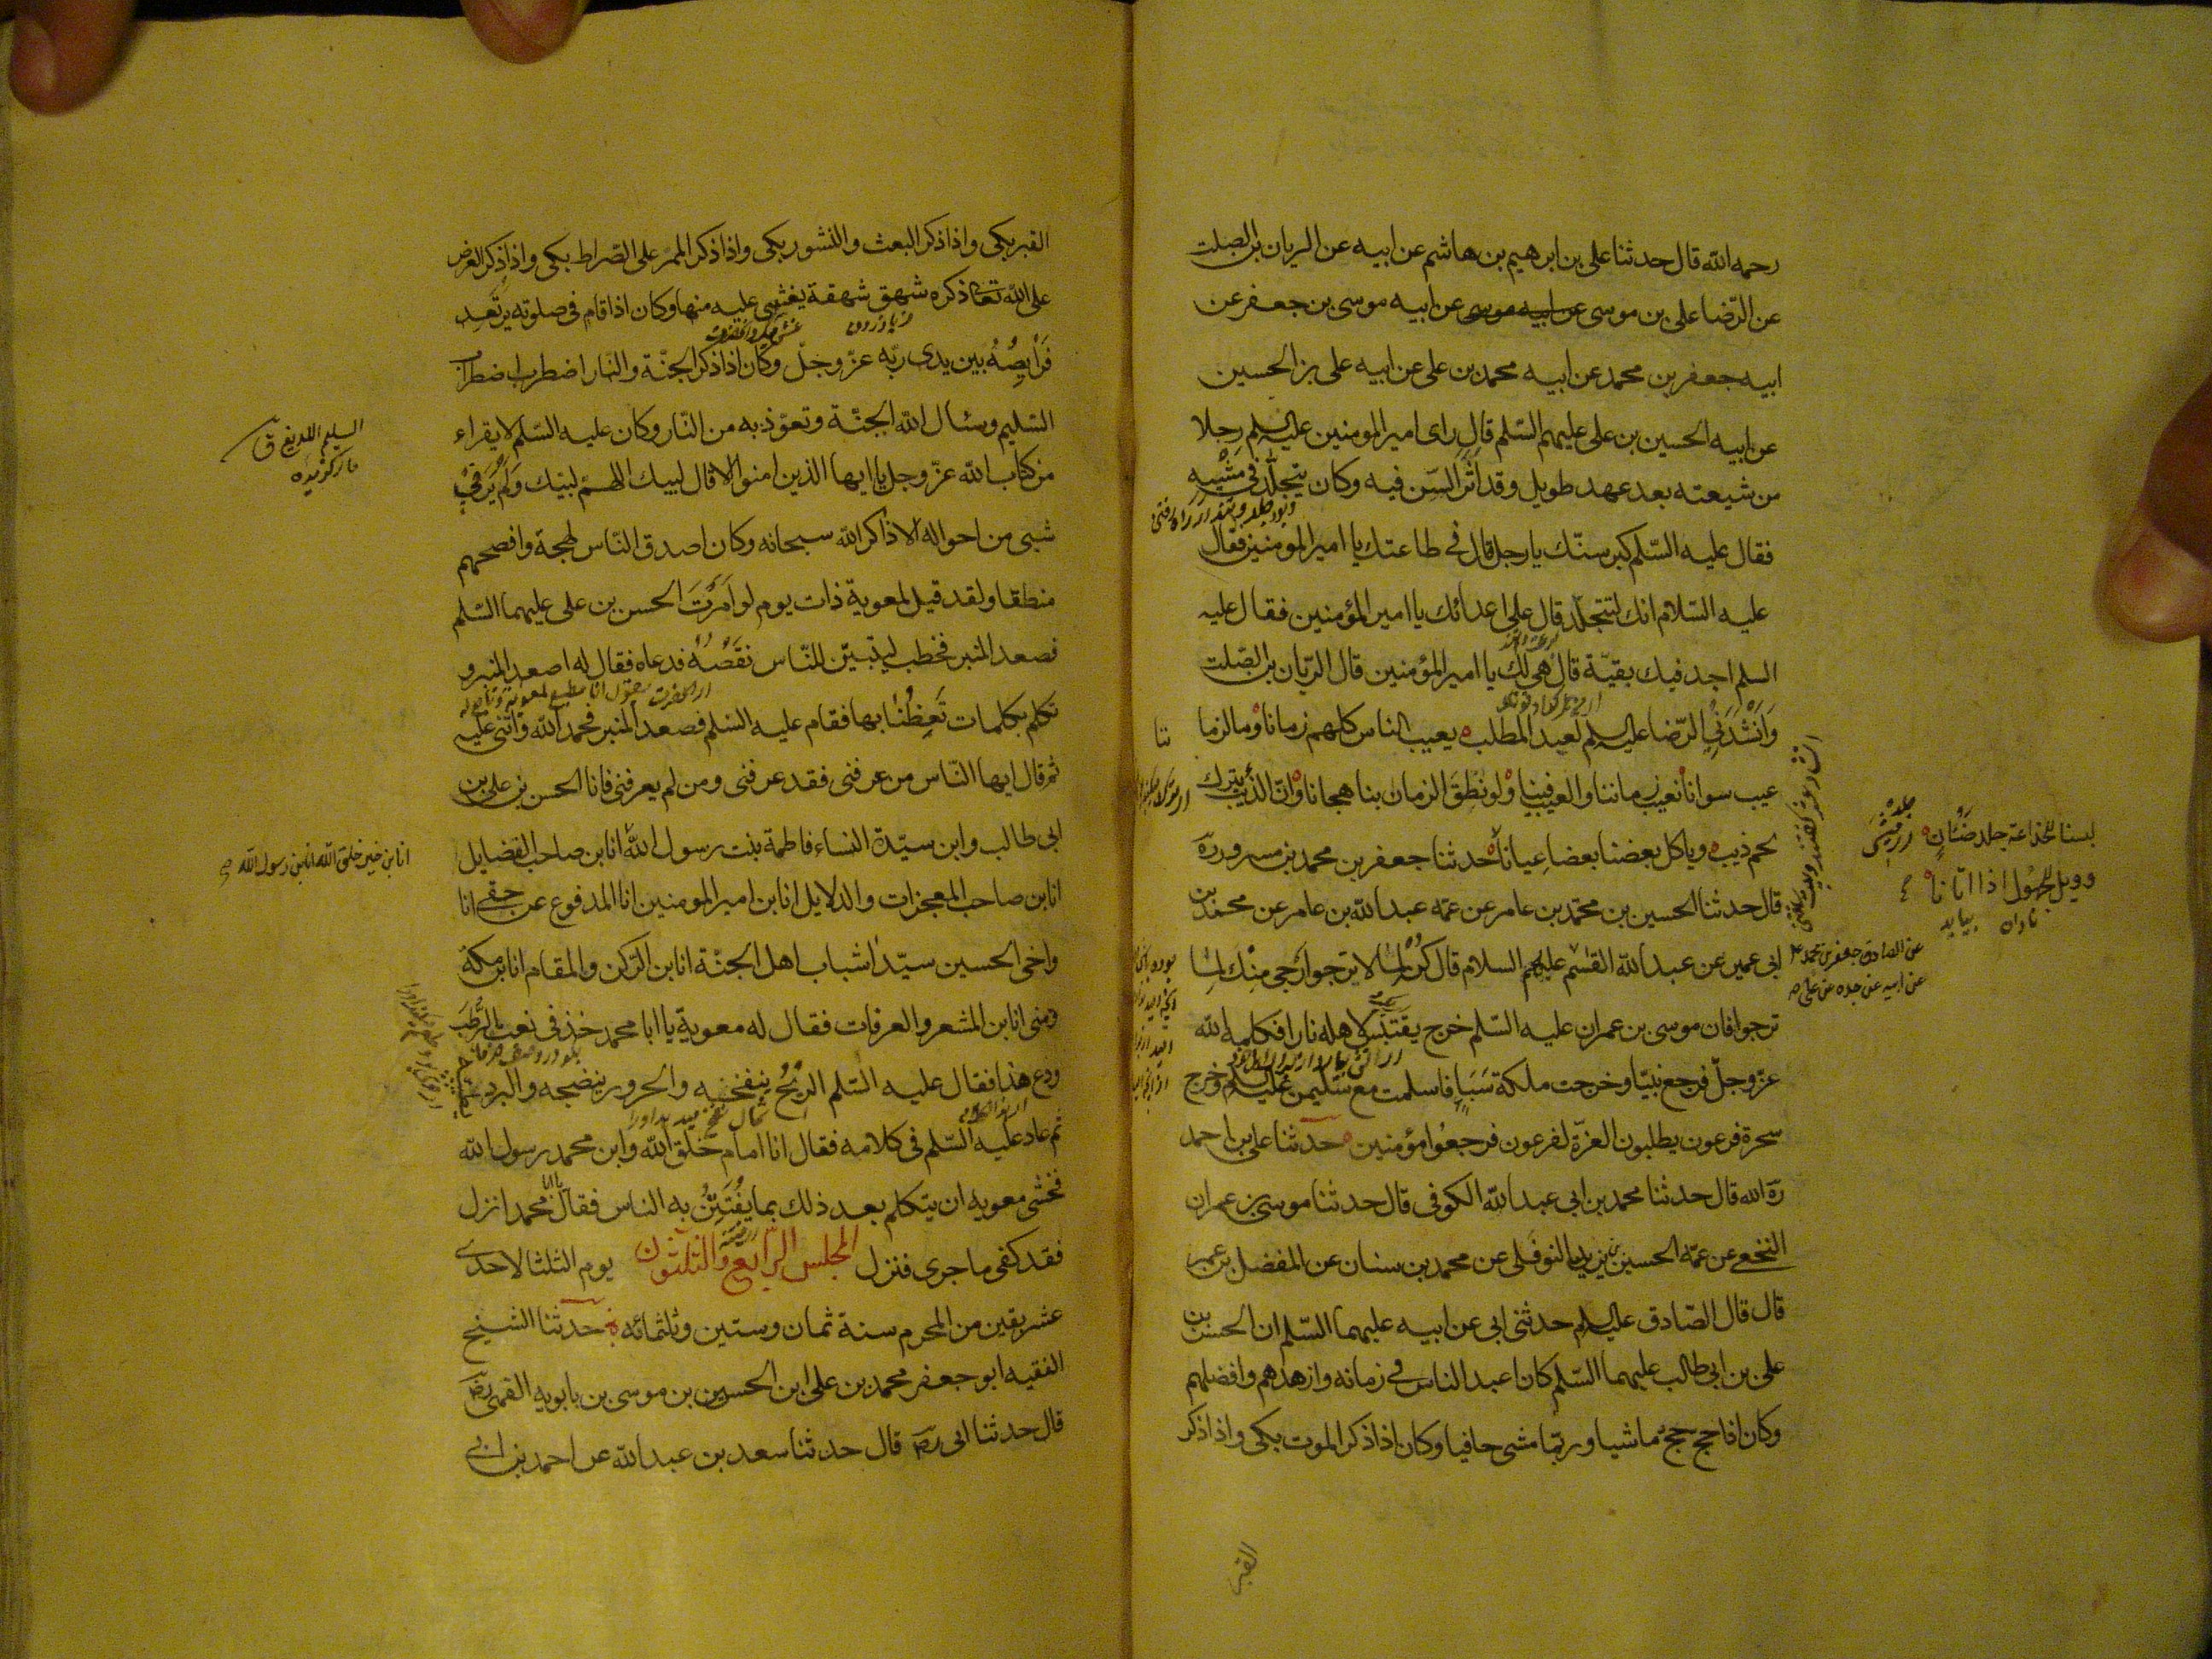 رحمه الله قال حدثنا على بن ابرهيم بن هاشم عن ابيه عن الريان بن الصلت
عن الرّضا على بن موسى عن ابيه موسى عن ابيه موسى بن جعفر عن
ابيه جعفر بن محمد عن ابيه محمد بن على عن ابيه على بن الحسين
عن ابيه الحسين بن على عليهم السّلم قال راى امير المومنين عليه السلم رجلا
من شيعته بعد عهد طويل وقد اثر السّن فيه وكان يتجلّد فى مشيه
فقال عليه السّلم كبر سنّك يا رجل قال فى طاعتك يا امير المومنين فقال
عليه السّلام انك لتتجلّد قال على اعدائك يا امير المؤمنين فقال عليه
السلم اجد فيك بقيّة قال هى لك يا امير المؤمنين قال الريّان بن الصّلت
وَاَنْشَدَنِى الرّضا عليه السلم لعبد المطلب يعيب الناس كلهم زمانا وما لزما
ننا
عيب سوانا نعيب زماننا والعيب فينا ولو نَطَقَ الزمان بنا هجانا وانّ الذئب يترك
لحم ذيب ويأكل بعضنا بعضا عيانا حدثنا جعفر بن محمد بن مسرور ره
لبسنا للخداعة جلد ضَئانٍ
وويل للجهول اذا اتانا
نادان بيايد
قال حدثنا الحسين بن محمّد بن عامر عن عمّه عبد الله بن عامر عن محمد بن
ابى عمير عن عبد الله القسم عليهم السلام قال كُن لما لا ترجو ارجى مِنْك لما
عن الصادق جعفر بن محمد ع
عن ابيه عن جده عن على ع
ترجوا فان موسى بن عمران عليه السّلم خرج يقتبس لاهله نارا فكلمه الله
عزّ وجلّ فرجع نبيّا وخرجت ملكة سَبَاٍ فاسلمت مع سُلَيمن عليه السلم وخرج
سحرة فرعون يطلبون العزّة لفرعون فرجعُوا مؤمنين حدثنا على بن احمد
ره الله قال حدثنا محمد بن ابى عبد الله الكوفى قال حدثنا موسى بن عمران
النخعى عن عمّه الحسين بن يزيد النوفلى عن محمد بن سنان عن المفضل بن عمر
قال قال الصّادق عليه السلم حدثنى ابى عن ابيه عليهما السّلم ان الحسن بن
على بن ابى طالب عليهما السّلم كان اعبد الناس فى زمانه وازهدهم وافضلهم
وكان اذا حج حجّ ماشيا وربّما مشى حافيا وكان اذا ذكر الموت بكى واذا ذكر
القبر
القبر بكى واذا ذكر البعث والنشور بكى واذا ذكر الممرّ على الصّراط بكى واذا ذكر العرض
على الله تعالى ذكره شهق شهقة يغشى عليه منها وكان اذا قام فى صلوته ترتعد
فَرَايصُهُ بين يدى ربّه عزّ وجلّ وكان اذا ذكر الجنّة والنّار اضطرب اضطراب
السّليم وسئال الله الجنّة وتعوّذ به من النّار وكان عليه السّلم لا يقراء
السليم اللديغ ق
مار گزيده
من كتاب الله عزّ وجل يا ايها الذين امنوا الا قال لبيك اللهمّ لبيّك وَلَم يُرَ فى
شىء من احواله الا ذاكرا لله سبحانه وكان اصدق النّاس لهجة وافصحهم
منطقا ولقد قيل لمعوية ذات يوم لو اَمَرْتَ الحسن بن على عليهما السّلم
فصعد المنبر فخطب ليتبيّن للنّاس نقصُهُ فدعاه فقال له اصعد المنبر و
تكلم بكلمات تَعِظُنَا بها فقام عليه السّلم فصعد المنبر فحمد الله واثنى عليه
ثم قال ايها النّاس من عرفنى فقد عرفنى ومن لم يعرفنى فانا الحسن بن على بن
ابى طالب وابن سيّدة النساء فاطمة بنت رسول الله انا بن صاحب الفضايل
انا بن خير خلق الله انا بن رسول الله
انا بن صاحب المعجزات والدلايل انا بن امير المومنين انا المدفوع عن حقى انا
واخى الحسين سيّدا شباب اهل الجنّة انا بن الرّكن والمقام انا بن مكة
ومنى انا بن المشعر والعرفات فقال له معوية يا ابا محمد خذ فى نعت الرُّطَب
ودع هذا فقال عليه السّلم الرّيحُ ينفخه والحرور ينضجه والبرد
ثم عاد عليه السّلم فى كلامه فقال انا امام خلق الله وابن محمد رسول الله
فخشى معويه ان يتكلم بعد ذلك بما يُفْتَتِنُ به الناس فقال يا ابا محمد انزل
فقد كفى ما جرى فنزل المجلس الرّابع والثلثون يوم الثلثا لاحدى
عشر بقين من المحرم سنة ثمان وستين وثلثمائه حدثنا الشيخ
الفقيه ابو جعفر محمد بن على ابن الحسين بن موسى بن بابويه القمى رضى
قال حدثنا ابى رضى قال حدثنا سعد بن عبد الله عن احمد بن ابى